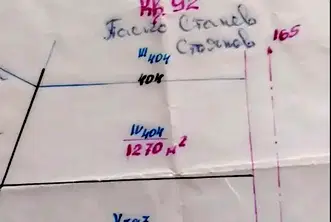 КВ 92
Паско Станев
Стоянов
165
III 404
404
IV 404
1270 м²